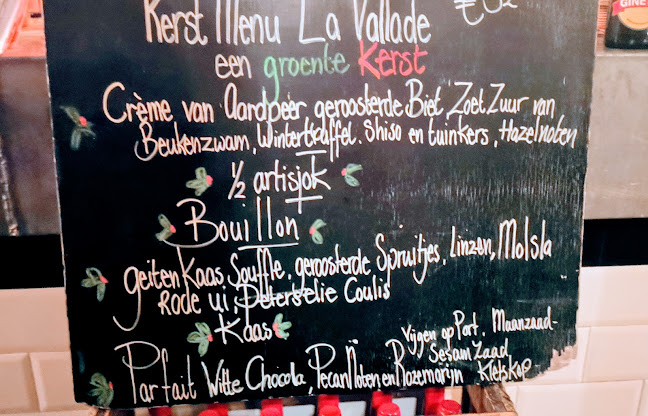 Kerst Menu La Vallade
een groente Kerst
Crème van Aardpeer geroosterde Biet, Zoet Zuur van
Beukenzwam, Wintertruffel. Shiso en tuinkers, Hazelnoten
1/2 artisjok
Bouillon
geiten Kaas Souffle, geroosterde Spruitjes, Linzen, Molsla
Rode ui, Peterselie Coulis
Kaas
Vijgen op Port, Maanzaad-
Sesam Zaad
Kletskop
Parfait Witte Chocola, Pecan Noten en Rozemarijn
GINE